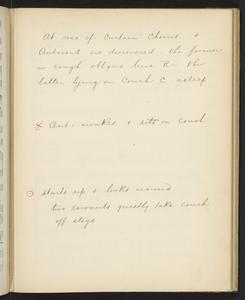 At rise of Curtain Chorus &
Antwerd are discovered. The former
in rough oblique line R. the
latter lying on Couch C asleep
x Ant. awakes & sits on couch
starts up & looks around
two servants quietly take couch
off stage